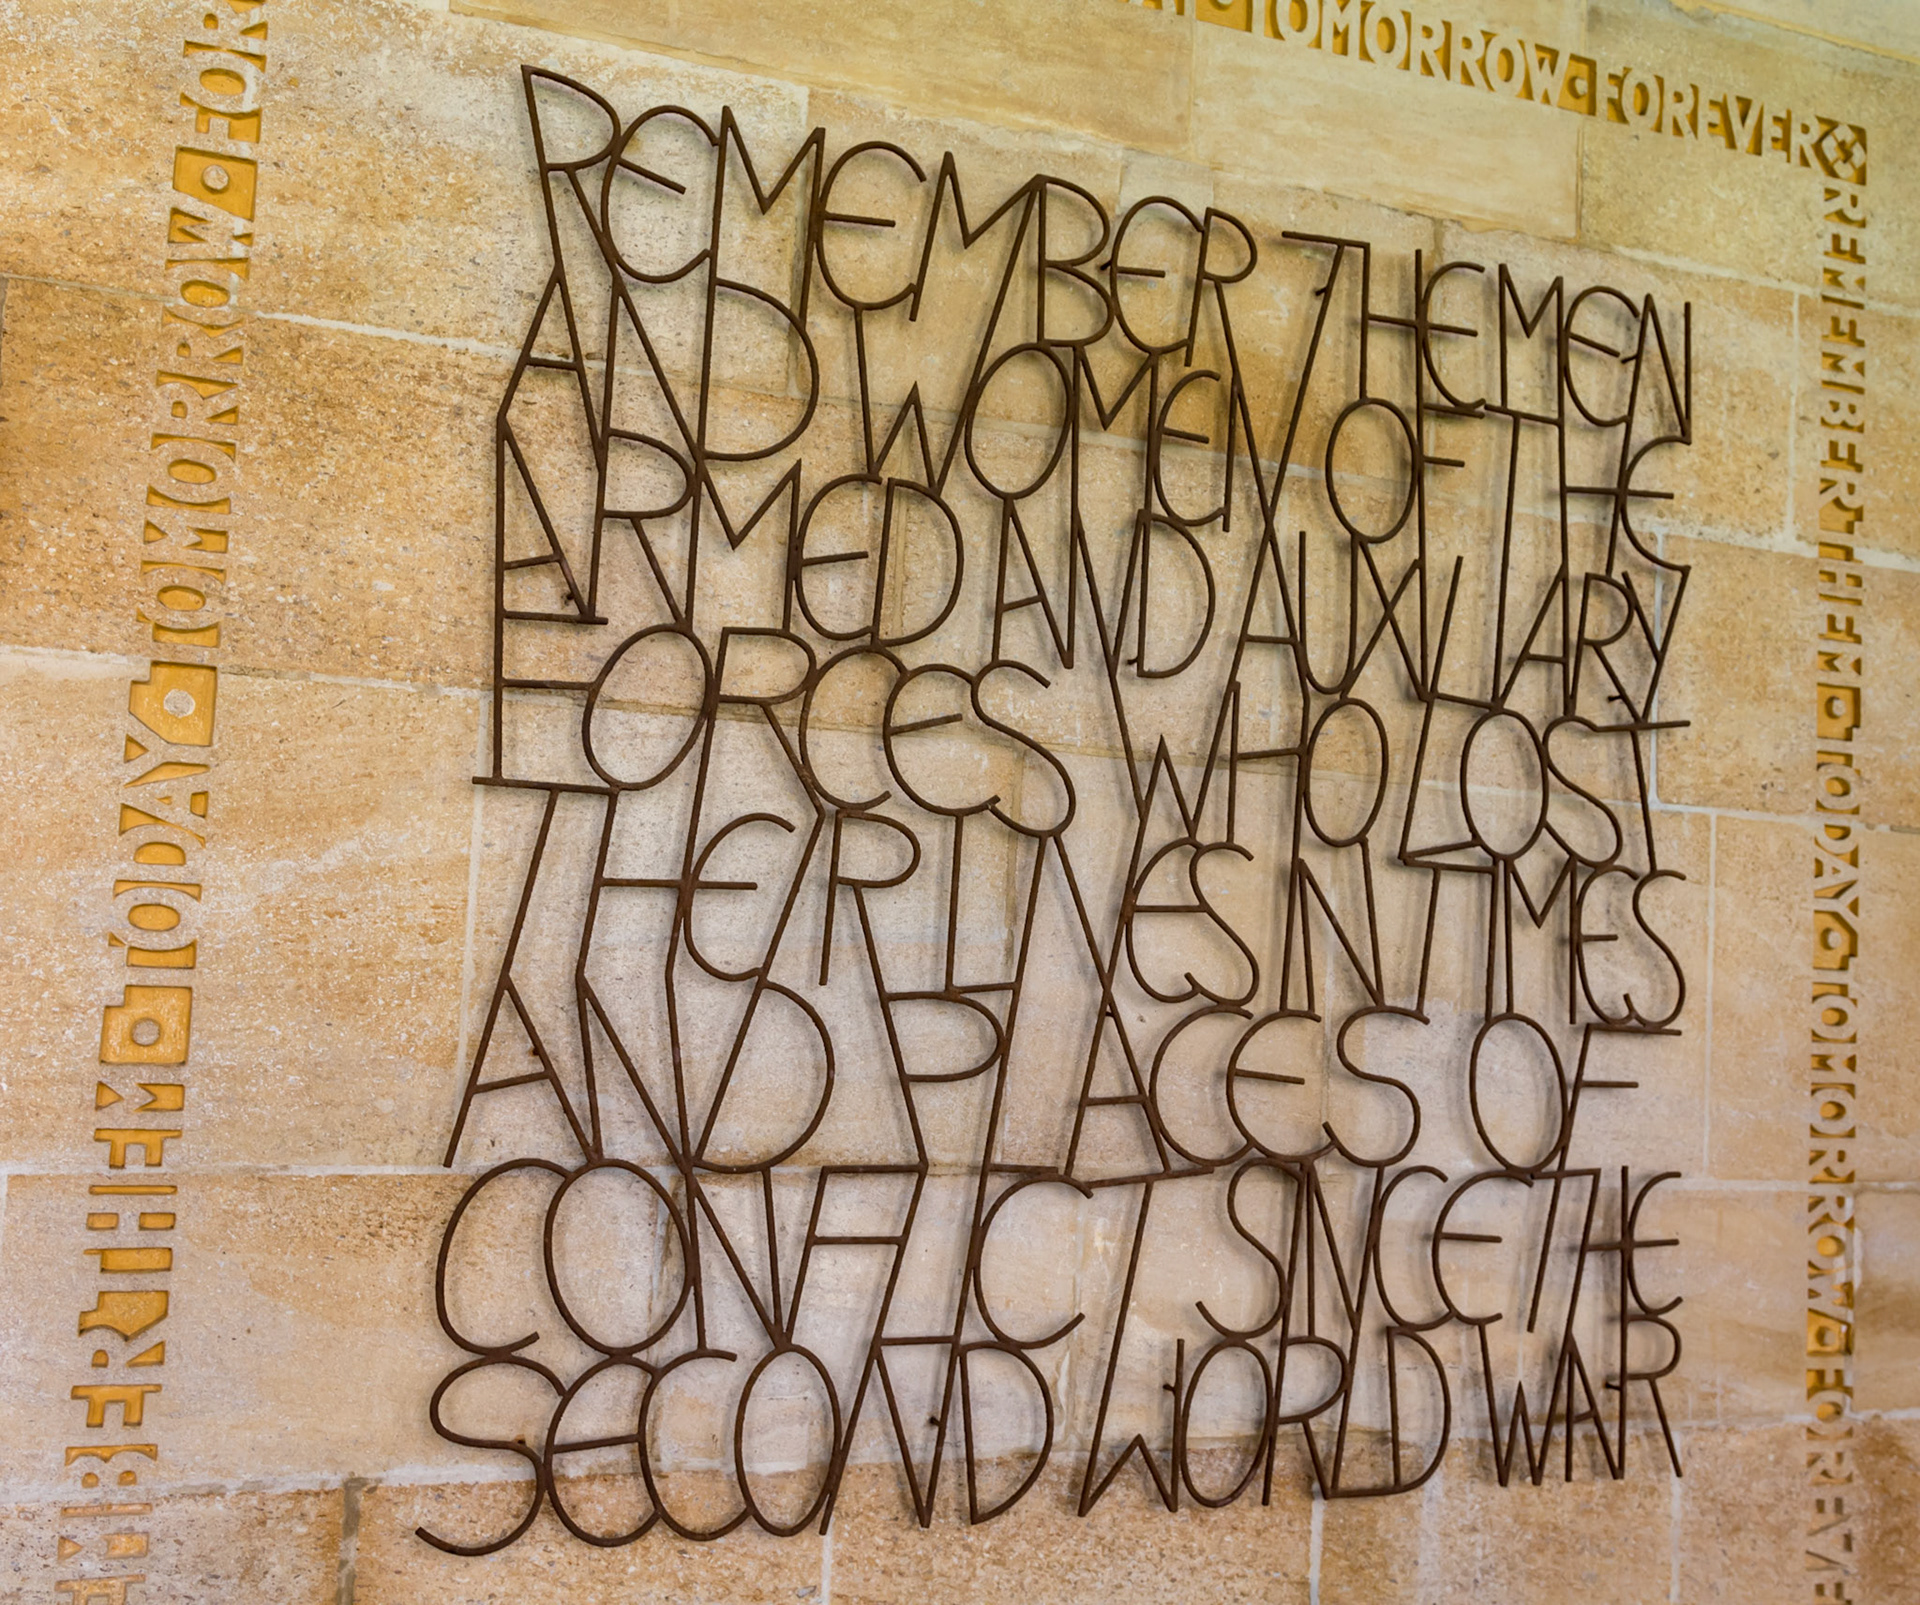 TOMORROW FOREVER
REMEMBER THE MEN
AND WOMEN OF THE
ARMED AND AUXILIARY
FORCES WHO LOST
THEIR LIVES IN TIMES
AND PLACES OF
CONFLICT SINCE THE
SECOND WORLD WAR
REMEMBER THEM TODAY TOMORROW FOREVER
REMEMBER THEM TODAY TOMORROW FOR